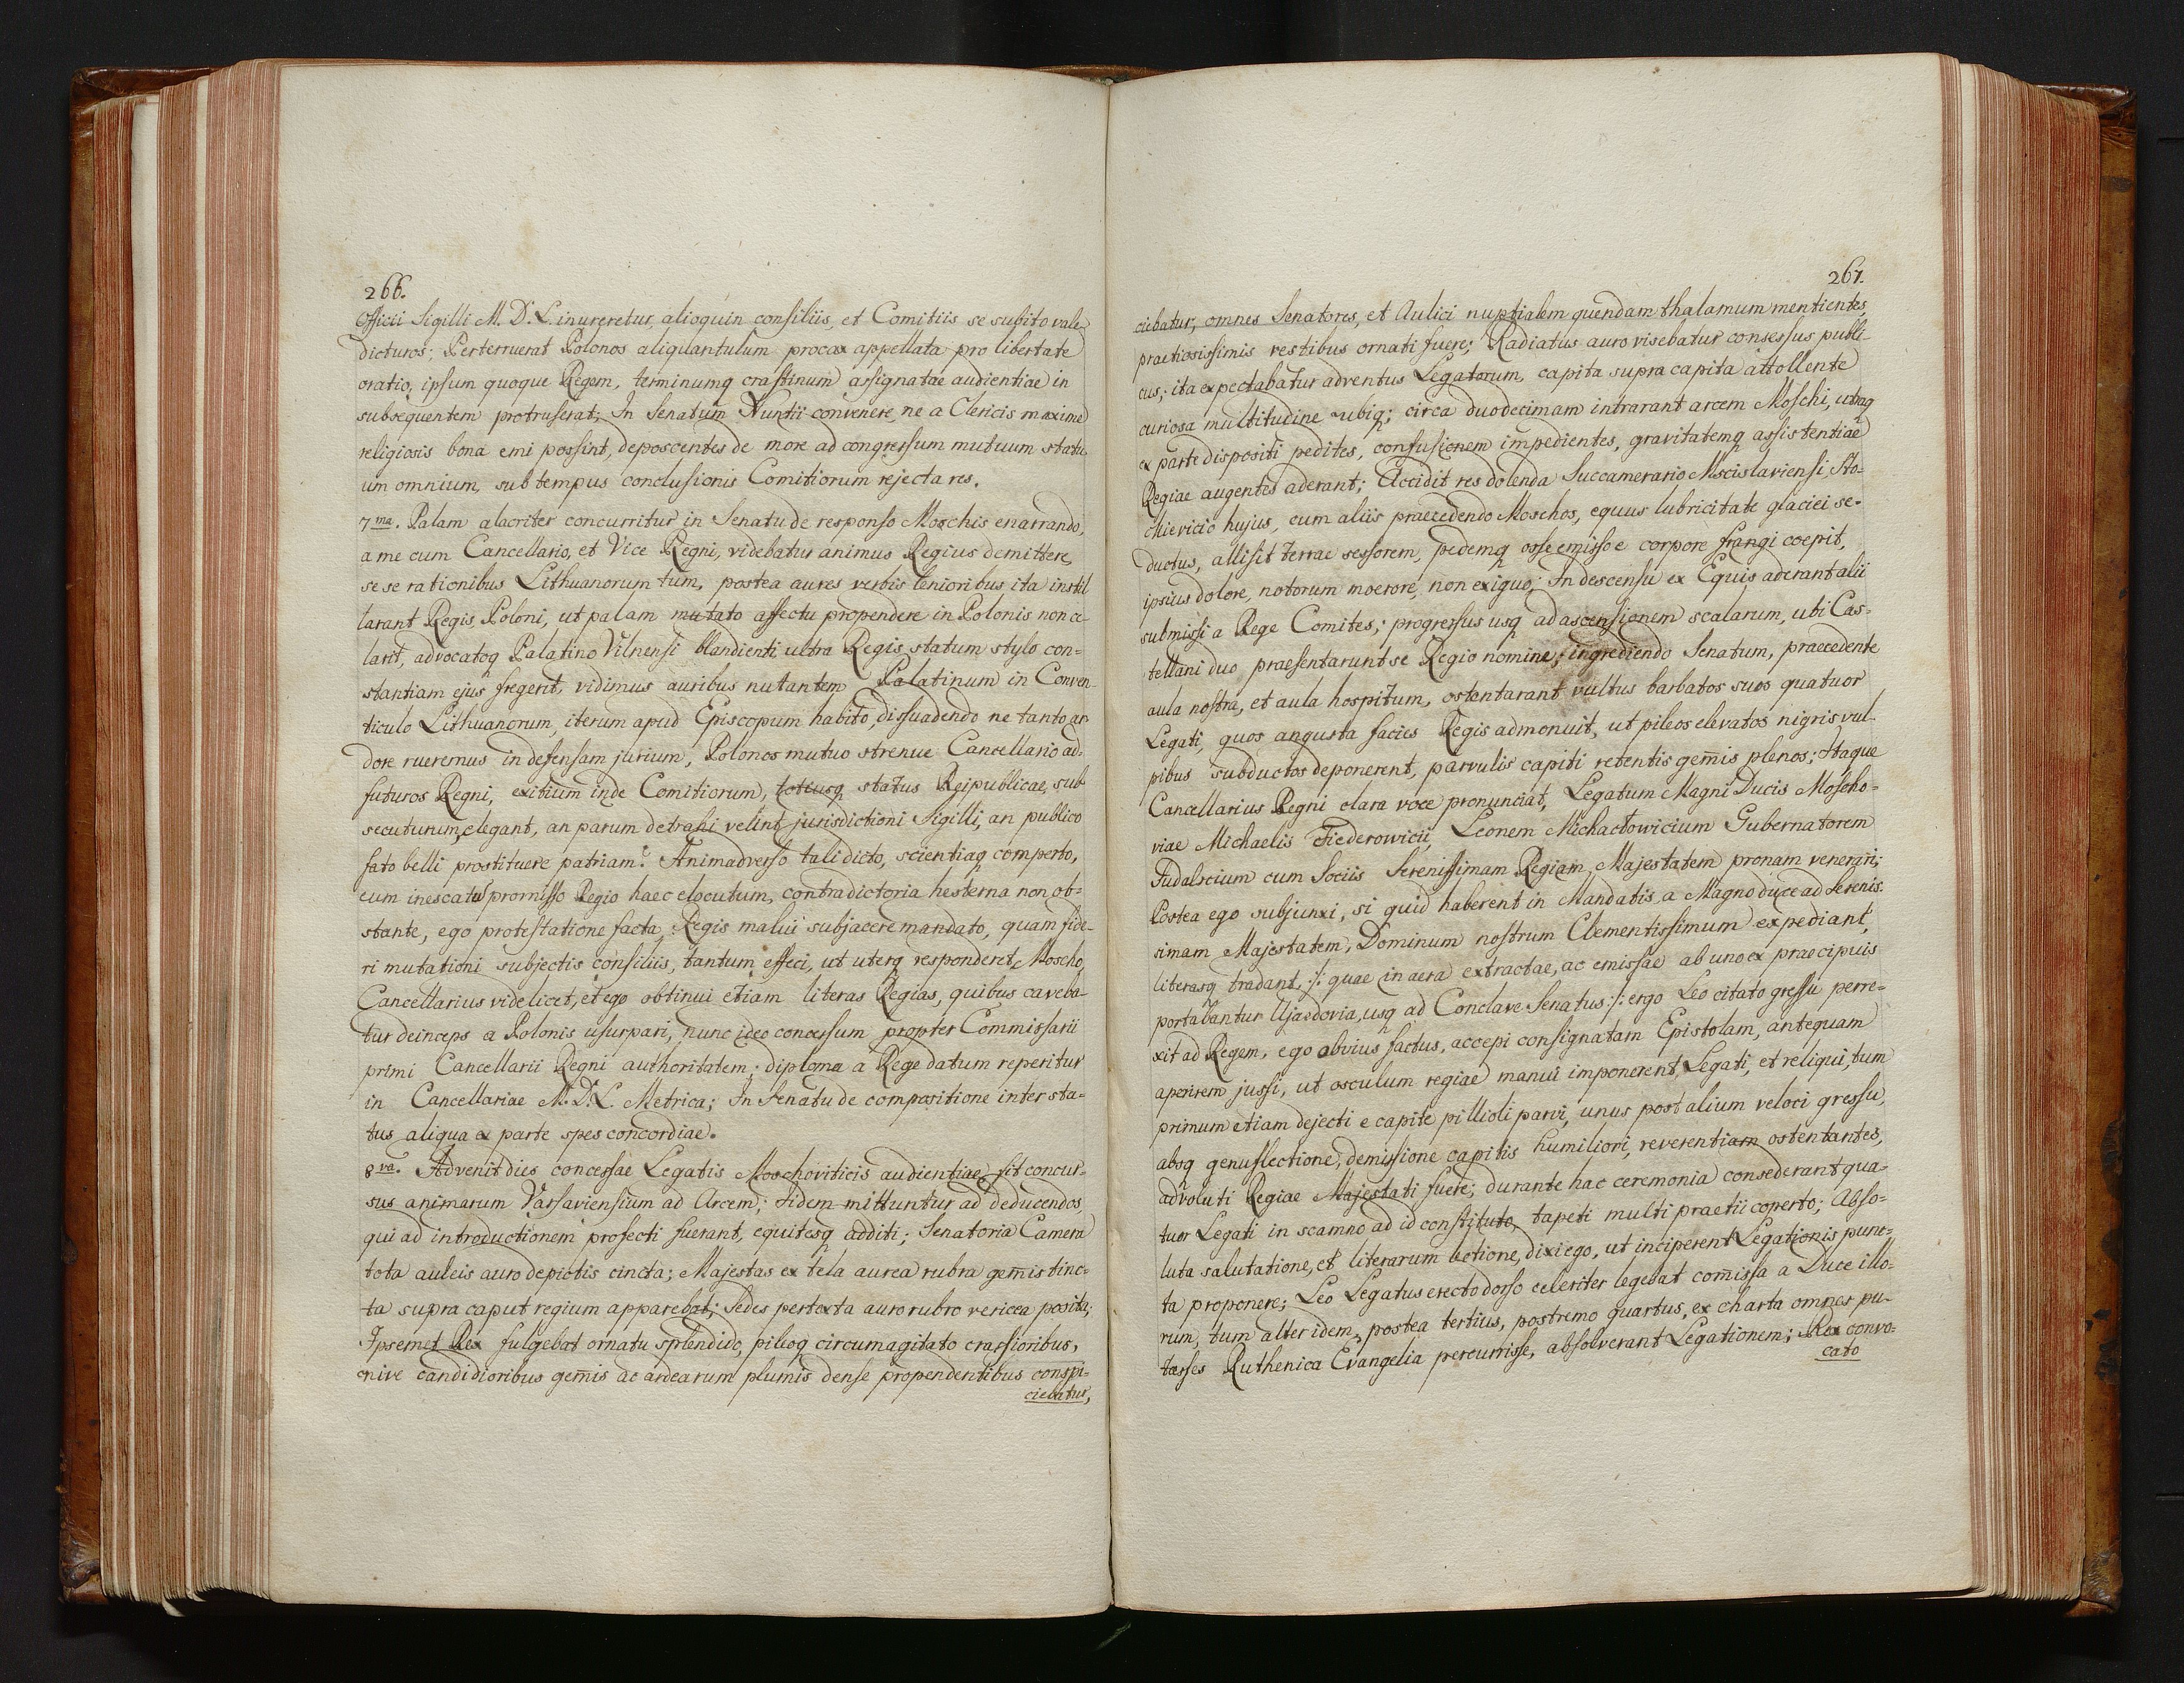 266.
Officii Sigilli M. D. L. inureretur, alioquin consiliis, et Comitiis se subito vale
dicturos; Perterruerat Polonos aliquantulum procax appellata pro libertate
oratio, ipsum quoque Regem, terminumq crastinum assignatae audientiae in
subsequentem protruserat; In Senatum Nuntii convenere, ne a Clericis maxime
religiosis bona emi possint, deposcentes de more ad congressum mutuum statu
um omnium, sub tempus conclusionis Comitiorum rejecta res.
7ma. Palam alacriter concurritur in Senatu de responso Moschis enarrando,
a me cum Cancellario, et Vice Regni, videbatur animus Regius demittere,
se se rationibus Lithuanorum tum, postea aures verbis lenioribus ita instil
larant Regis Poloni, ut palam mutato affectu propendere in Polonis non ce-
larit, advocatoq Palatino Vilnensi blandienti ultra Regis statum stylo con=
stantiam ejus fregerit, vidimus auribus nutantem Palatinum in Conven-
ticulo Lithuanorum, iterum apud Episcopum habito, dissuadendo ne tanto ar
dore rueremus in defensam jurium, Polonos mutuo strenue Cancellario ad=
futuros Regni, exitium inde Comitiorum, totiusq status Reipublicae, sub
secuturum, elegant, an parum detrahi velint jurisdictioni Sigilli, an publico
fato belli prostituere patriam? Animadverso tali dicto, scientiaq comperto,
eum inescatu promisso Regio haec elocutum, contradictoria hesterna non ob=
stante, ego protestatione facta, Regis malui subjacere mandato, quam fide-
ri mutationi subjectis consiliis, tantum effeci, ut uterq responderet Moscho,
Cancellarius videlicet, et ego obtinui etiam literas Regias, quibus caveba-
tur deinceps a Polonis usurpari, nunc ideo concessum propter Commissarii
primi Cancellarii Regni authoritatem; diploma a Rege datum reperitur
in Cancellariae M. D. L. Metrica; In Senatu de compositione inter sta=
tus aliqua ex parte spes concordiae.
8va. Advenit dies concessae Legatis Moschoviticis audientiae, fit concur=
sus animarum Varsaviensium ad Arcem; Iidem mittuntur ad deducendos,
qui ad introductionem profecti fuerant, equitesq additi; Senatoria Camera
tota auleis auro depictis cincta; Majestas ex tela aurea rubra gem̄is tinc=
ta supra caput regium apparebat; Sedes pertexta auro rubro vericea posita;
Ipsemet Rex fulgebat ornatu splendido, pileoq circumagitato crassioribus,
nive candidioribus gem̄is ac ardearum plumis dense propendentibus conspi=
ciebatur,
267.
ciebatur, omnes Senatores, et Aulici nuptialem quendam thalamum mentientes,
praetiosissimis vestibus ornati fuere; Radiatus auro visebatur consessus publi-
cus; ita expectabatur adventus Legatorum, capita supra capita attollente
curiosa multitudine ubiq; circa duodecimam intrarant arcem Moschi, utraq
ex parte dispositi pedites, confusionem impedientes, gravitatemq assistentiae
Regiae augentes aderant; Accidit res dolenda Succamerario Mscislaviensi, Sto=
chievicio hujus, cum aliis praecedendo Moschos, equus lubricitate glaciei se=
ductus, allisit terrae sessorem, pedemq osse emisso e corpore frangi coepit,
ipsius dolore, notorum moerore, non exiguo; In descensu ex Equis aderant alii
submissi a Rege Comites; progressus usq ad ascensionem scalarum, ubi Cas=
tellani duo praesentarunt se Regio nomine; ingrediendo Senatum, praecedente
aula nostra, et aula hospitum, ostentarant vultus barbatos suos quatuor
Legati, quos angusta facies Regis admonuit, ut pileos elevatos nigris vul-
pibus subductos deponerent, parvulis capiti retentis gem̄is plenos; Itaque
Cancellarius Regni clara voce pronunciat, Legatum Magni Ducis Moscho=
viae Michaelis Fiederowicii, Leonem Michałowicium Gubernatorem
Sudalscium cum Sociis Serenissimam Regiam Majestatem pronam venerari;
Postea ego subjunxi, si quid haberent in Mandatis a Magno duce ad Serenis-
simam Majestatem, Dominum nostrum Clementissimum expediant,
literasq tradant, :/: quae in aera extractae, ac emissae ab uno ex praecipuis
portabantur Ujazdovia, usq ad Conclave Senatus :/: ergo Leo citato gressu perre=
xit ad Regem, ego obvius factus, accepi consignatam Epistolam, antequam
aperirem jussi, ut osculum regiae manui imponerent, Legati, et reliqui, tum
primum etiam dejecti e capite pillioli parvi, unus post alium veloci gressu,
absq genuflectione, demissione capitis humiliori, reverentiam ostentantes,
advoluti Regiae Majestati fuere; durante hac ceremonia consederant qua=
tuor Legati in scamno ad id constituto, tapeti multi praetii coperto; Abso=
luta salutatione, et literarum lectione, dixi ego, ut inciperent Legationis punc=
ta proponere; Leo Legatus erecto dorso celeriter legebat com̄issa a Duce illo=
rum, tum alter idem, postea tertius, postremo quartus, ex charta omnes pu-
tasses Ruthenica Evangelia percurrisse, absolverant Legationem; Rex convo=
cato